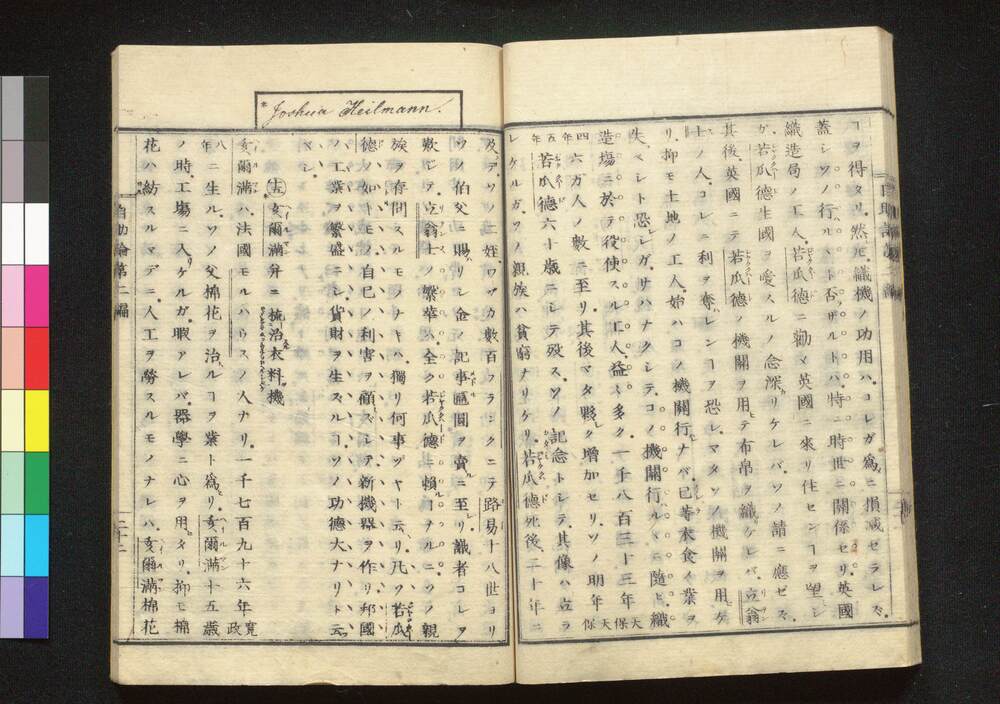 コヲ得タリ然𪜈織機ノ功用ハコレガ爲ニ損減セラレズ
蓋シソノ行ハルト否ザルトハ特ニ時世ニ關係セリ英國
織造局ノ工人若瓜德ニ勸メ英國ニ來リ住センヿヲ望シ
ガ若瓜德生國ヲ愛スルノ念深ケレバソノ請ニ應ゼズ
其後英國ニテ若瓜德ノ機關ヲ用テ布帛ヲ織ケレバ立翁
士ノ人コレニ利ヲ奪レンヿヲ恐レマタソノ機關ヲ用ケ
リ抑モ土地ノ工人始ハコノ機關行ナバ已等衣食ノ業ヲ
失ベシト恐レシガサハナクシテコノ機關行ルヽニ隨ヒ織
造塲ニ於テ役使スル工人益ミ多ク一千八百三十三年天保
四年六万人ノ數ニ至リ其後マタ夥ク增加セリソノ明年天保
五年若瓜德六十歲ニシテ歿スソノ記念トシテ其像ハ立ラ
レケルガソノ親族ハ貧窮ナリケリ若瓜德死後二十年ニ
Joshua Heilmann.
及デソノ二姪ワヅカ數百フランクニテ路易十八世ヨリ
ソノ伯父ニ賜リシ金ノ記事匾圓ヲ賣ニ至レリ識者コレヲ
歎ジテ立翁士ノ繁華ハ全ク若瓜德ニ賴ルヿナルニソノ親
族ヲ存問スルモノナキハ獨リ何事ゾヤト云リ凡ソ若瓜
德ノ如キモノ自己ノ利害ヲ顧ズシテ新機器ヲ作リ邦國
ノ工業ヲ繁盛ニシ貨財ヲ生ズルヿソノ功德大ナリト云
ベシ
亥爾滿弁ニ梳治衣料機
亥爾滿ハ法國モルハウスノ人ナリ一千七百九十六年寬政
八年ニ生ルソノ父棉花ヲ治ルヿヲ業ト爲リ亥爾滿十五歲
ノ時工塲ニ入リケルガ暇アレバ器學ニ心ヲ用タリ抑モ棉
花ハ紡スルマデニ人工ヲ勞スルモノナレバ亥爾滿棉花
自助論第二編
二十二